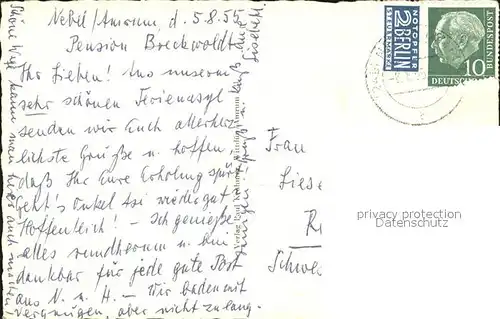 Nebel/Amrum d. 5.8.55
Pension Breckwoldt
Ihr Lieben! Aus unserm
sehr schönen Ferienasyl
senden wir Euch allerherz-
lichste Grüße u. hoffen,
daß Ihr Eure Erholung spürt
Geht's Onkel Asi wieder gut?
Hoffentlich! – Ich genieße
alles rundherum u. bin
dankbar für jede gute Post
aus N. u. H. – Wir baden mit
Vergnügen, aber nicht zu lang.
Schöne Wege kann man hier auch machen
Gruß
Liselott.
Verlag
Amrum
NOTOPFER
2 BERLIN
STEUERMARKE
DEUTSCHE
BUNDESPOST
10
Frau
Liese
Schwe
privacy protection
Datenschutz